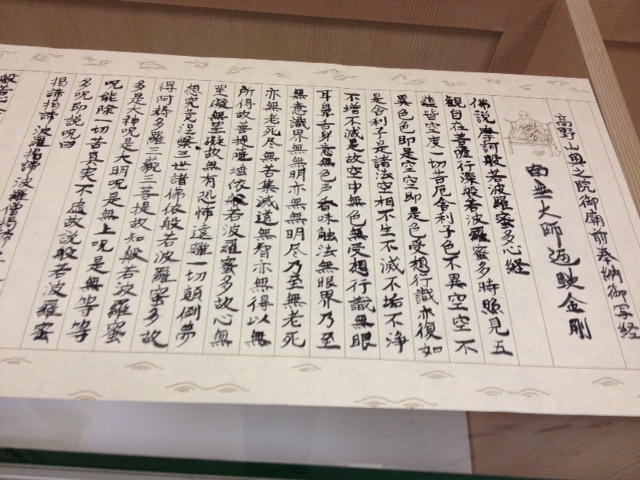 高野山奥之院御廟前奉納御写経
南無大師遍照金剛
佛説摩訶般若波羅蜜多心経
観自在菩薩行深般若波羅蜜多時照見五
蘊皆空度一切苦厄舎利子色不異空空不
異色色即是空空即是色受想行識亦復如
是舎利子是諸法空相不生不滅不垢不浄
不増不減是故空中無色無受想行識無眼
耳鼻舌身意無色声香味触法無眼界乃至
無意識界無無明亦無無明尽乃至無老死
亦無老死尽無苦集滅道無智亦無得以無
所得故菩提薩埵依般若波羅蜜多故心無
罣礙無罣礙故無有恐怖遠離一切顛倒夢
想究竟涅槃三世諸佛依般若波羅蜜多故
得阿耨多羅三藐三菩提故知般若波羅蜜
多是大神呪是大明呪是無上呪是無等等
呪能除一切苦真実不虚故説般若波羅蜜
多呪即説呪曰
羯諦羯諦 波羅羯諦 波羅僧羯諦
般若心